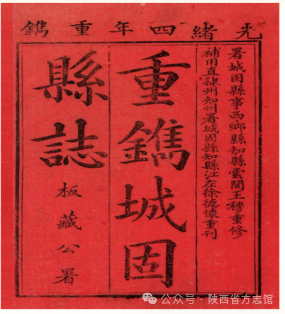 光緒四年重鐫
署城固縣事西鄉縣知縣雲間王穆重修
補用直隸州知州署城固縣知縣江左徐德懷重刊
重鐫城固
縣誌
板藏公署
公众号·陕西省方志馆